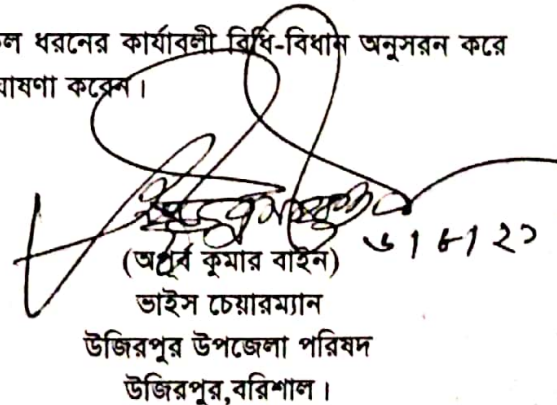 ল ধরনের কার্যাবলী বিধি-বিধান অনুসরন করে
ঘোষণা করেন।
(অপূর্ব কুমার বাইন)
ভাইস চেয়ারম্যান
উজিরপুর উপজেলা পরিষদ
উজিরপুর,বরিশাল।